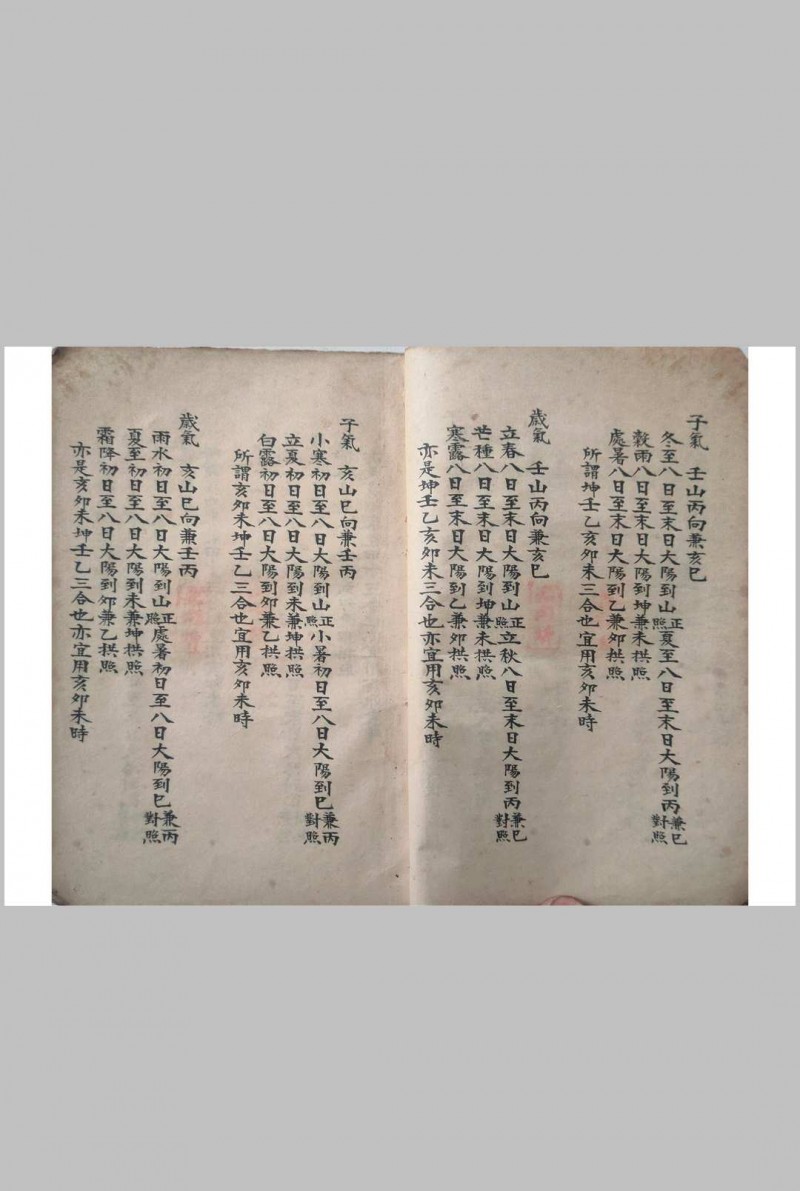 子氣 壬山丙向兼亥巳
冬至八日至末日大陽到山正照夏至八日至末日大陽到丙兼巳對照
穀雨八日至末日大陽到坤兼未拱照
處暑八日至末日大陽到乙兼卯拱照
所謂坤壬乙亥卯未三合也宜用亥卯未時
歲氣 壬山丙向兼亥巳
立春八日至末日大陽到山正照立秋八日至末日大陽到丙兼巳對照
芒種八日至末日大陽到坤兼未拱照
寒露八日至末日大陽到乙兼卯拱照
亦是坤壬乙亥卯未三合也亦宜用亥卯未時
子氣 亥山巳向兼壬丙
小寒初日至八日大陽到山正照小暑初日至八日大陽到巳兼丙對照
立夏初日至八日大陽到未兼坤拱照
白露初日至八日大陽到卯兼乙拱照
所謂亥卯未坤壬乙三合也宜用亥卯未時
歲氣 亥山巳向兼壬丙
雨水初日至八日大陽到山正照處暑初日至八日大陽到巳兼丙對照
夏至初日至八日大陽到未兼坤拱照
霜降初日至八日大陽到卯兼乙拱照
亦是亥卯未坤壬乙三合也亦宜用亥卯未時